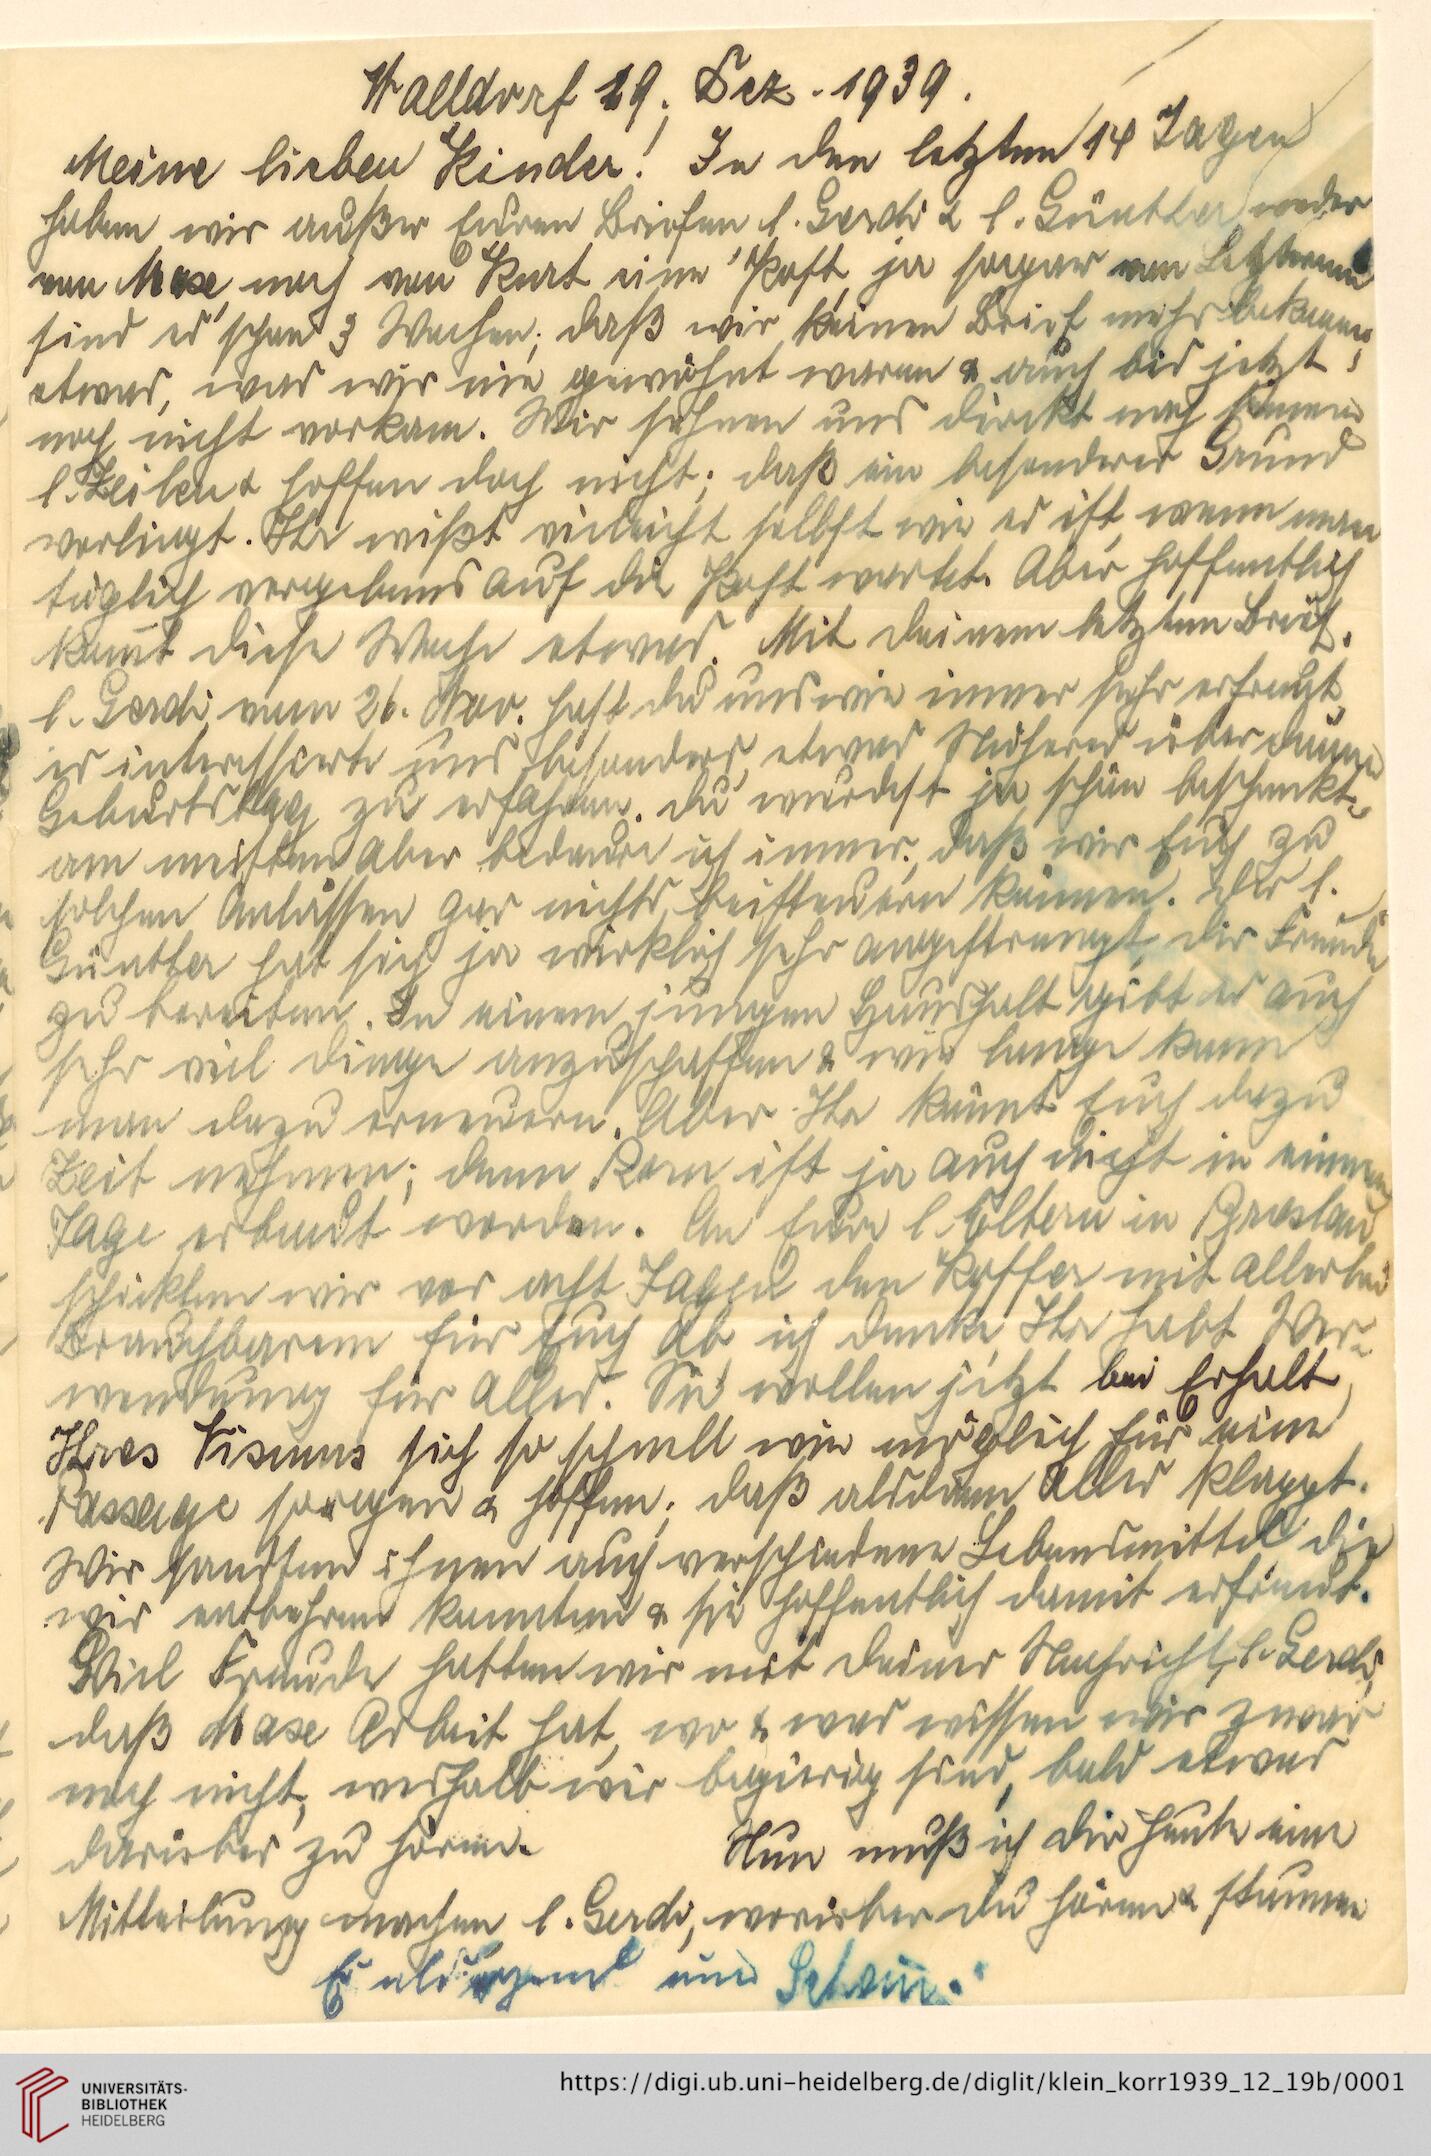 Walldorf 19. Dez. 1939.
Meine lieben Kinder! In den letzten 14 Tagen
haben wir außer Euren Briefen l. Gerdi & l. Günther weder
von Mase, noch von Kurt eine Post, ja sogar von Letzterem
sind es schon 3 Wochen, daß wir keinen Brief mehr bekamen,
etwas, was wir nie gewöhnt waren & auch bis jetzt
noch nicht vorkam. Wir sehnen uns direkt nach seinen
l. Zeilen & hoffen doch nicht, daß ein besonderer Grund
vorliegt. Ihr wißt vieleicht selbst wie es ist, wenn man
täglich vergebens auf die Post wartet. Aber hoffentlich
kommt diese Woche etwas. Mit deinem letzten Brief,
l. Gerdi, vom 26. Nov. hast du uns wie immer sehr erfreut,
es interessierte uns besonders, etwas Näheres über deinen
Geburtstag zu erfahren. Du wurdest ja schön beschenkt,
am meisten aber bedaure ich immer, daß wir Euch zu
solchen Anlässen gar nichts beisteuern können. Der l.
Günther hat sich ja wirklich sehr angestrengt, dir Freude
zu bereiten. In einem jungen Haushalt gibt es auch
sehr viel Dinge anzuschaffen & wie lange kann
man dazu erneuern. Aber Ihr könnt Euch dazu
Zeit nehmen, denn Rom ist ja auch nicht in einem
Tage erbaut worden. An Eure l. Eltern in Breslau
schickten wir vor acht Tagen den Koffer mit allerlei
Brauchbarem für Euch ab ich denke, Ihr habt Ver-
wendung für Alles. Sie wollen jetzt bei Erhalt
Ihres Visums sich so schnell wie möglich für eine
Passage sorgen & hoffen, daß alsdann Alles klappt.
Wir sandten ihnen auch verschiedene Lebensmittel die
wir entbehren konnten & sie hoffentlich damit erfreut.
Viel Freude hatten wir mit deiner Nachricht, l. Gerdi,
daß Mase Arbeit hat, wo & was wissen wir zwar
noch nicht, weshalb wir begierig sind, bald etwas
darüber zu hören. Nun muß ich dir heute eine
Mitteilung machen l. Gerdi, worüber du hören & staunen